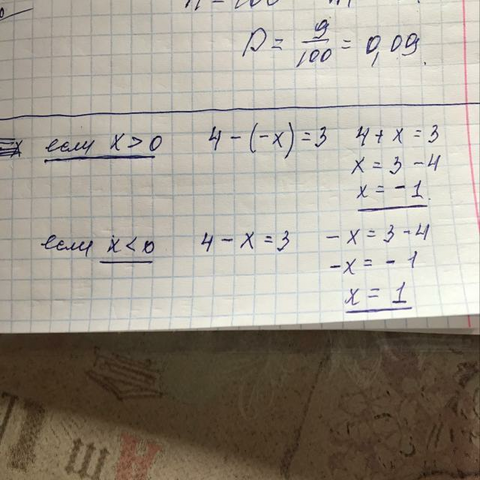 P = 9/100 = 0,09.
если x > 0 4 - (-x) = 3 4 + x = 3
x = 3 - 4
x = -1.
если x < 0 4 - x = 3 - x = 3 - 4
-x = - 1
x = 1